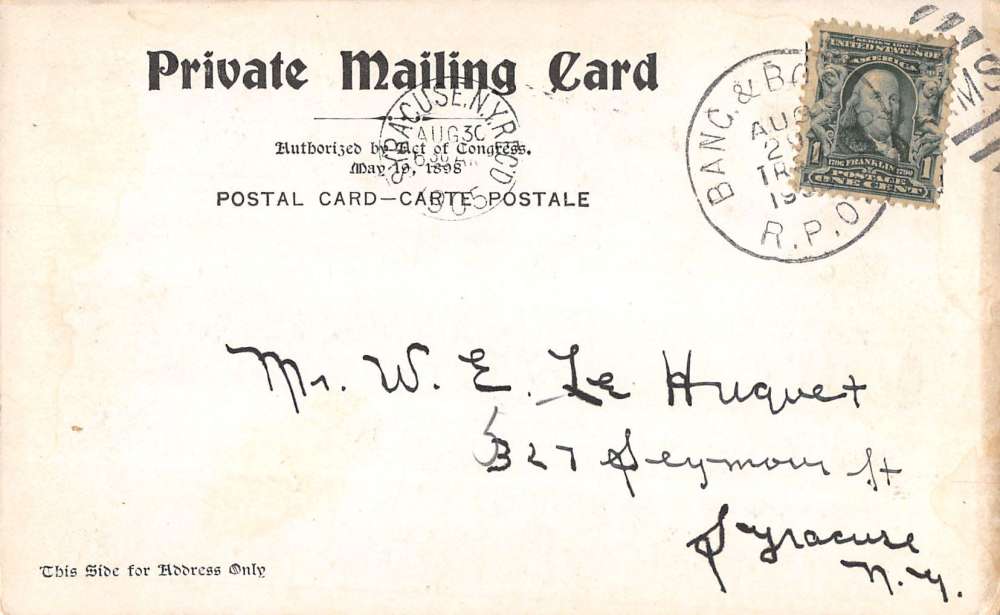 Private Mailing Card
Authorized by Act of Congress.
May 19, 1898
POSTAL CARD—CARTE POSTALE
SYRACUSE, N.Y. REC'D
AUG 30
1905
BANG. & BO
AUG
TR
19
R.P.O
SERIES 1902
UNITED STATES OF
AMERICA
1706 FRANKLIN 1790
1 POSTAGE 1
ONE CENT
Mr. W. E. Le Huquet
327 Seymour St
Syracuse
N.Y.
This Side for Address Only